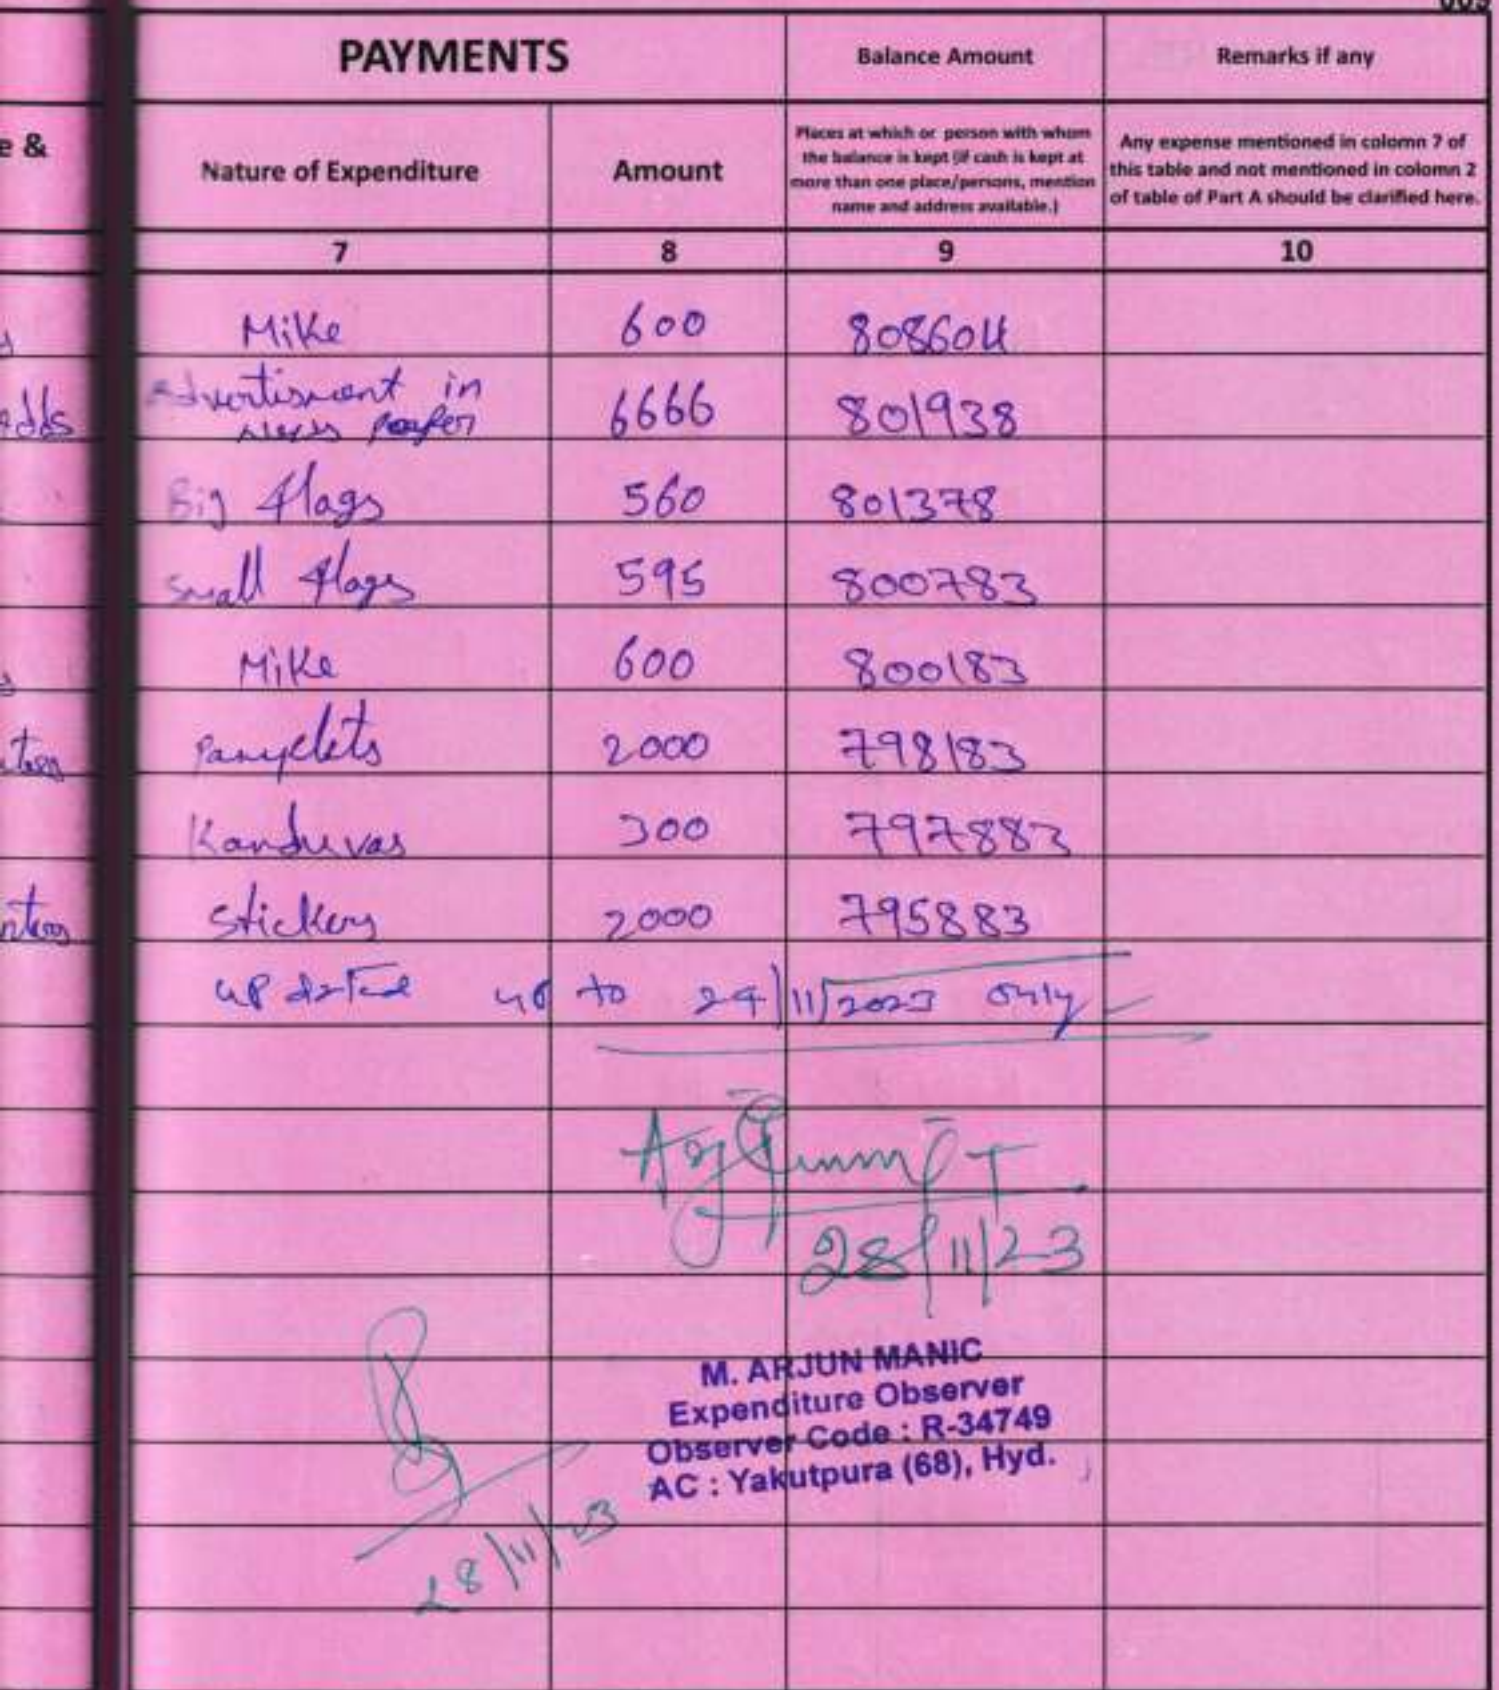 005
PAYMENTS
Balance Amount
Remarks if any
e &
Nature of Expenditure
Amount
Places at which or person with whom
the balance is kept (if cash is kept at
more than one place/persons, mention
name and address available.)
Any expense mentioned in colomn 7 of
this table and not mentioned in colomn 2
of table of Part A should be clarified here.
7 8 9 10
Mike 600 808604
Adds Advertisment in
news paper 6666 801938
Big flags 560 801378
Small flags 595 800783
Mike 600 800183
Pamplets 2000 798183
Kanduvas 300 797883
Stickers 2000 795883
up dated up to 24/11/2023 only
28/11/23
M. ARJUN MANIC
Expenditure Observer
Observer Code : R-34749
AC : Yakutpura (68), Hyd.
28/11/23